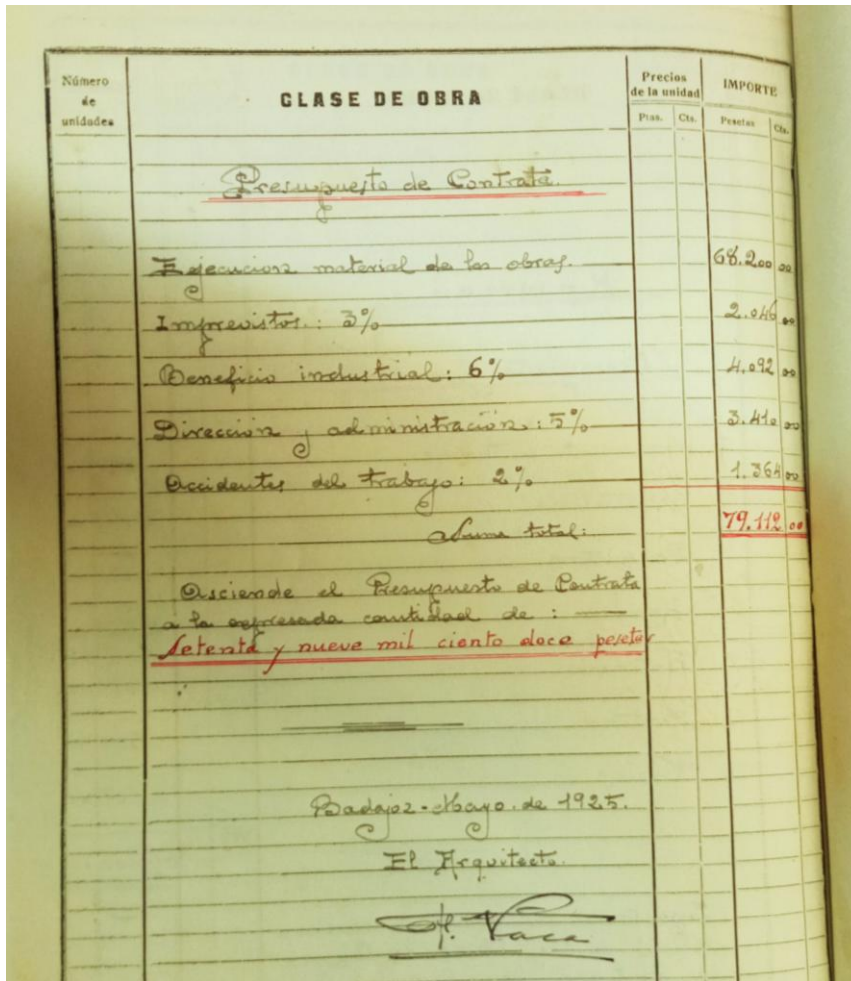 Número de unidades
CLASE DE OBRA
Precios de la unidad
IMPORTE
Ptas. Cts. Pesetas Cts.
Presupuesto de Contrata.
Ejecucion material de las obras. 68.200 00
Imprevistos.: 3% 2.046 00
Beneficio industrial: 6% 4.092 00
Dirección y administración: 5% 3.410 00
Accidentes del trabajo: 2% 1.364 00
Suma total: 79.112 00
Asciende el Presupuesto de Contrata
a la expresada cantidad de :
Setenta y nueve mil ciento doce pesetas
Badajoz - Mayo. de 1925.
El Arquitecto.
Vaca